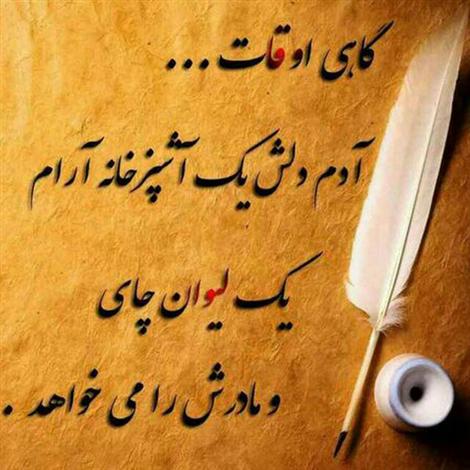 گاهی اوقات ...
آدم دلش یک آشپزخانه آرام
یک لیوان چای
و مادرش را می خواهد .